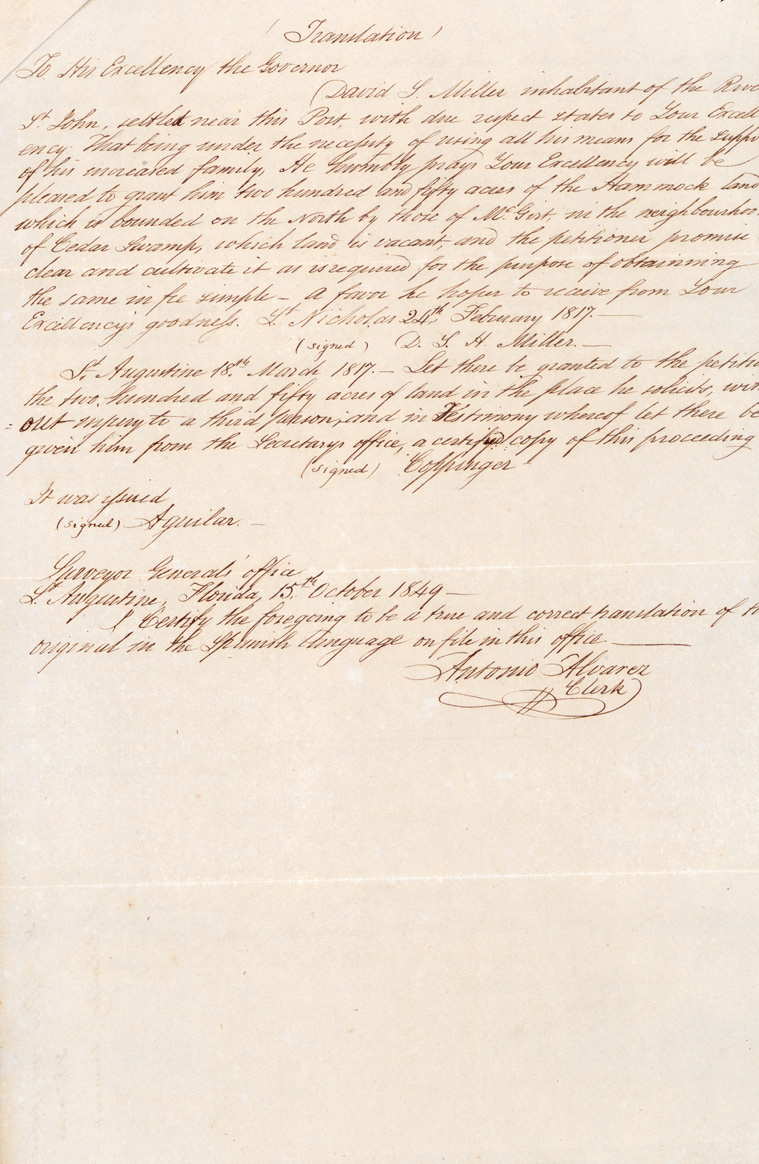 (Translation)
To His Excellency the Governor
David S. Miller inhabitant of the Rive
St. John, settled near this Post, with due respect states to Your Excell
ency. That being under the necessity of using all his means for the suppo
of his increased family, He humbly prays Your Excellency will be
pleased to grant him two hundred and fifty acres of the Hammock land
which is bounded on the North by those of McGirt, in the neighbourhoo
of Cedar Swamp, which land is vacant and the petitioner promise
clear and cultivate it as is required for the purpose of obtainning
the same in fee simple – a favor he hopes to receive from Your
Excellency's goodness. St. Nicholas 24th February 1817.—
(signed) D. S. H. Miller.—
St. Augustine 18th March 1817.— Let there be granted to the petiti
the two hundred and fifty acres of land in the place he solicits, with
=out injury to a third person; and in Testimony whereof let there be
given him from the Secretarys office, a certifyd copy of this proceeding
(signed) Coppinger
It was issued
(signed) Aguilar.—
Surveyor Generals' office
St. Augustine, Florida, 15th October 1849—
I Certify the foregoing to be a true and correct translation of th
original in the Spanish language on file in this office—
Antonio Alvarez
Clerk